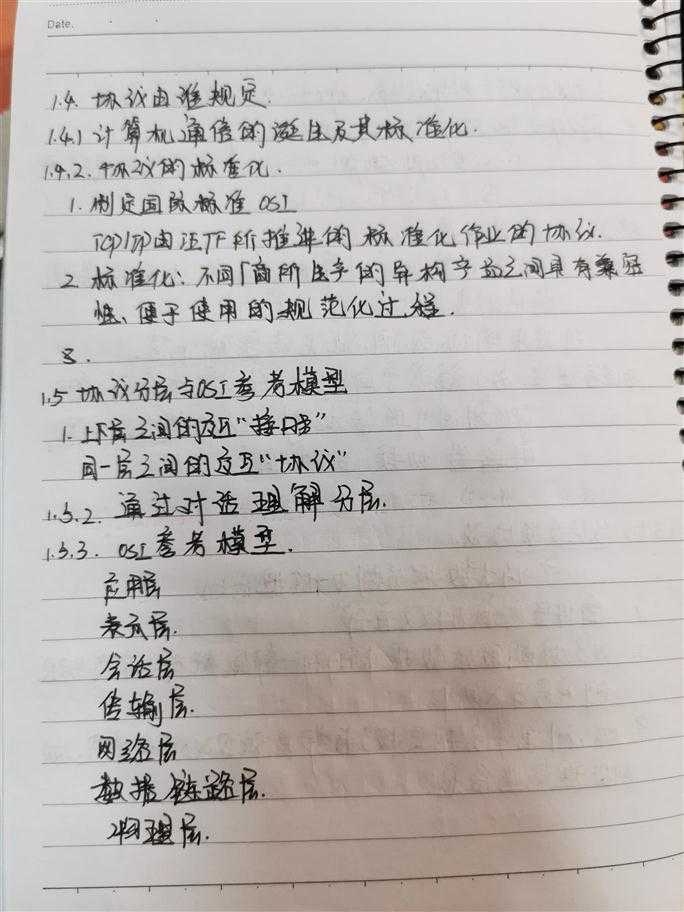 Date.
1.4. 协议由谁规定.
1.4.1 计算机通信的诞生及其标准化.
1.4.2. 协议的标准化.
1. 制定国际标准 OSI
TCP/IP由IETF所推进的 标准化作业的协议.
2 标准化: 不同厂商所生产的异构产品之间具有兼容
性、便于使用的规范化过程.
3.
1.5 协议分层与OSI参考模型
1. 上下层之间的交互“接口”
同一层之间的交互“协议”
1.5.2. 通过对话理解分层.
1.5.3. OSI参考模型.
应用层
表示层.
会话层
传输层.
网络层
数据链路层.
物理层.